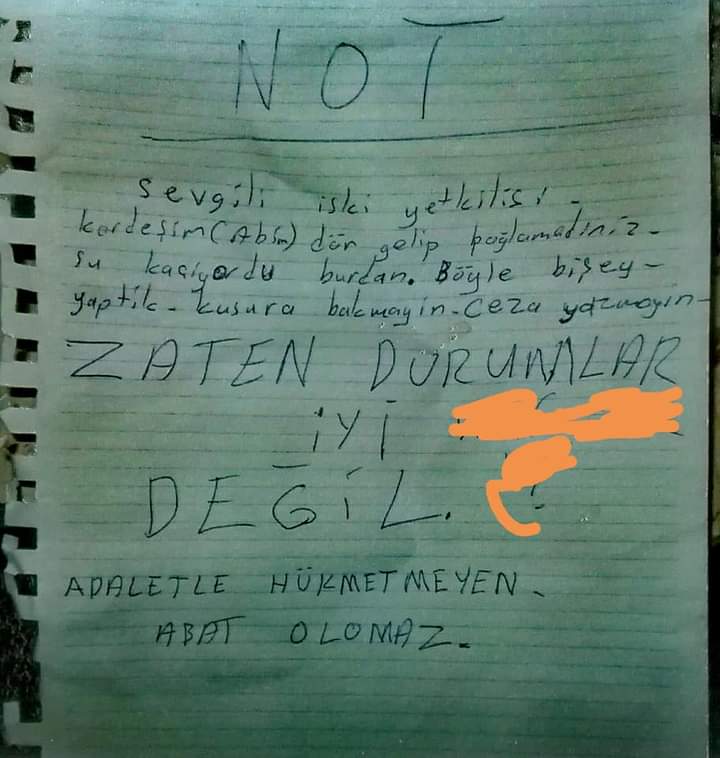 NOT
Sevgili iski yetkilisi -
kardeşim (Abim) dün gelip bağlamadınız -
su kaçıyordu burdan. Böyle bişey -
yaptik - kusura bakmayin - Ceza yazmayın -
ZATEN DURUMLAR
İYİ
DEĞİL. !
ADALETLE HÜKMETMEYEN -
ABAT OLOMAZ.